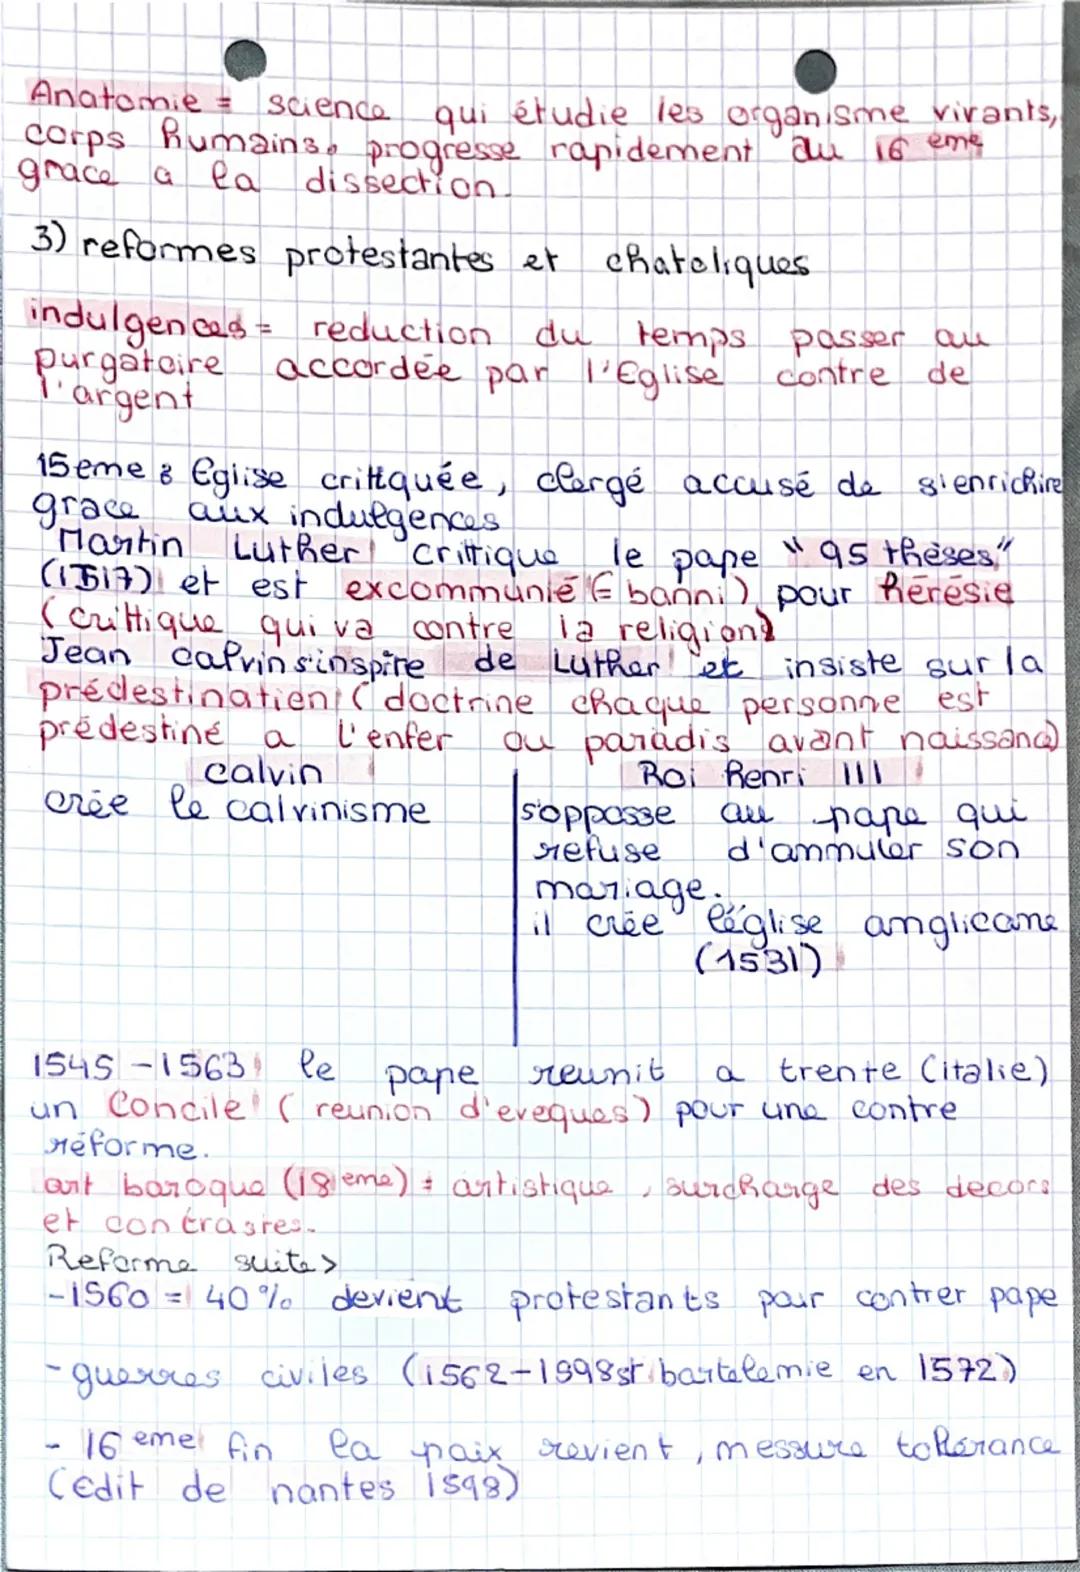 Anatomie = science qui étudie les organisme vivants,
corps humains. progresse rapidement au 16 eme
grace a la dissection.
3) reformes protestantes et chatoliques
indulgences = reduction du temps passer au
purgatoire accordée par l'Eglise contre de
l'argent
15eme : Eglise crittquée, clergé accusé de s'enrichire
grace aux indulgences
Martin Luther crittique le pape "95 thèses"
(1517) et est excommunié (= banni) pour hérésie
(crittique qui va contre la religion)
Jean calvin s'inspire de Luther et insiste sur la
prédestination (doctrine chaque personne est
prédestiné a l'enfer ou paradis avant naissance)
calvin Roi henri III
crée le calvinisme s'oppose au pape qui
refuse d'annuler son
mariage.
il crée l'église anglicane
(1531)
1545-1563 le pape reunit a trente (italie)
un Concile (reunion d'eveques) pour une contre
réforme.
art baroque (18 eme) = artistique, surcharge des decors
et contrastes.
Reforme suite >
-1560 = 40% devient protestants pour contrer pape
-guerres civiles (1562-1998 st bartelemie en 1572)
- 16 eme fin la paix revient, messure tolérance
(Edit de nantes 1598)